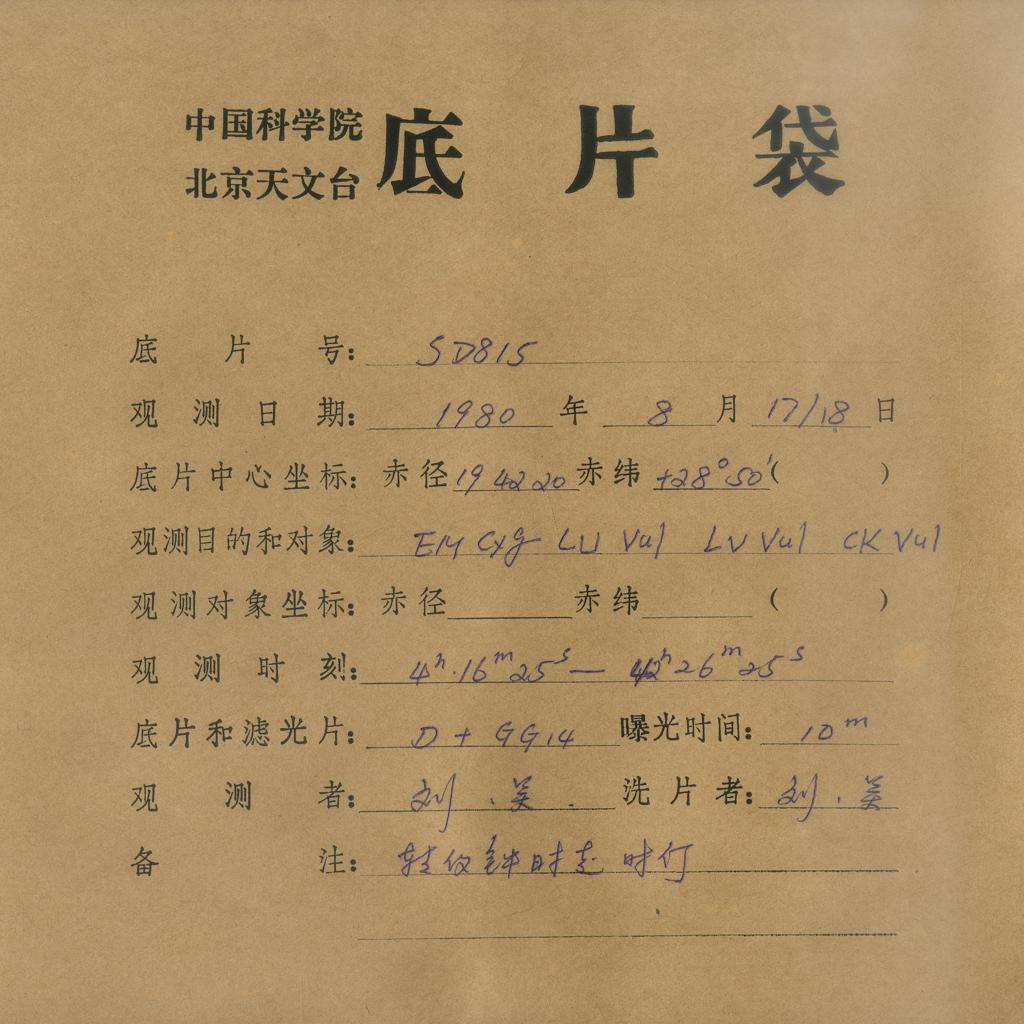 中国科学院
北京天文台 底片袋
底片号: SD815
观测日期: 1980 年 8 月 17/18 日
底片中心坐标: 赤径 19 42 20 赤纬 +28°50′( )
观测目的和对象: EM Cyg LU Vul LV Vul CK Vul
观测对象坐标: 赤径 赤纬 ( )
观测时刻: 4ʰ.16ᵐ25ˢ — 4ʰ26ᵐ25ˢ
底片和滤光片: D + GG14 曝光时间: 10ᵐ
观测者: 刘. 洗片者: 刘.
备注: 钟时走时停